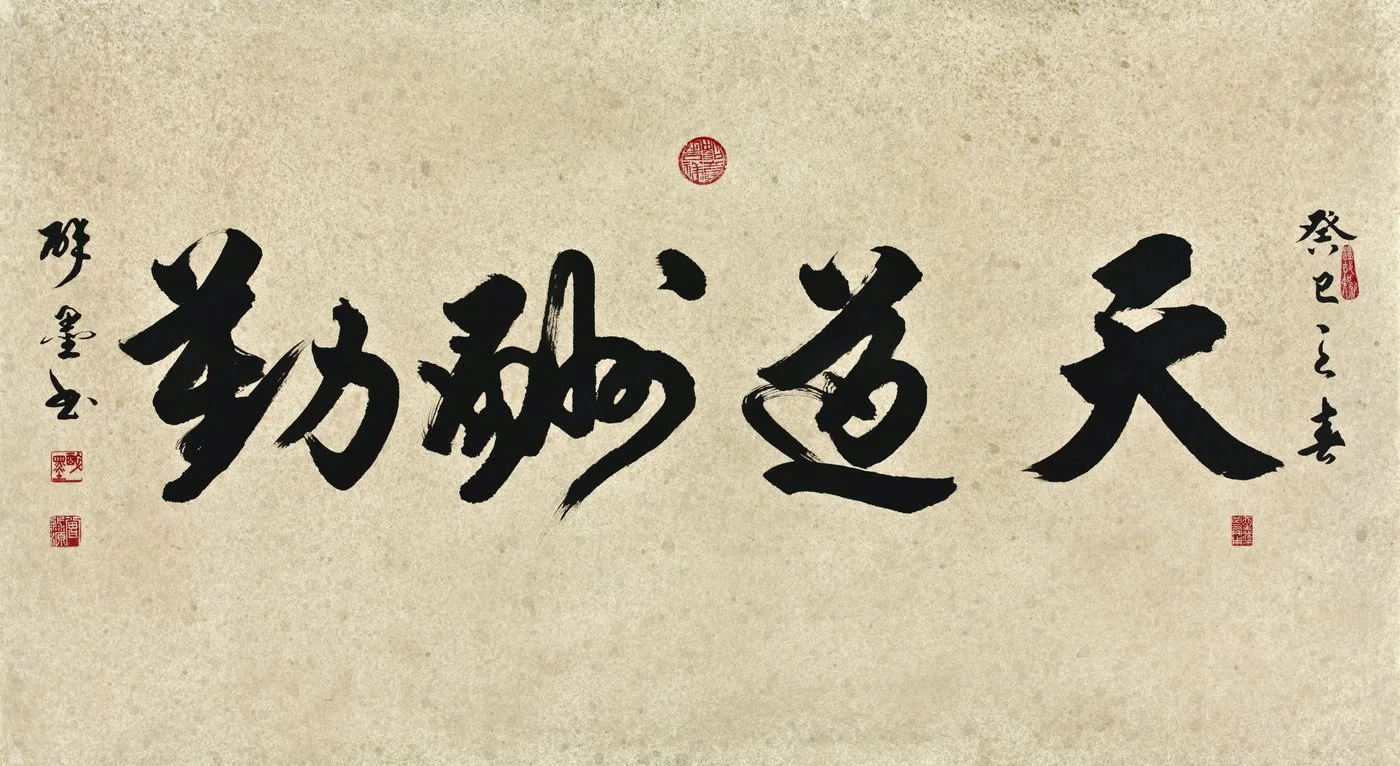 癸巳之春
天道酬勤
醉墨书